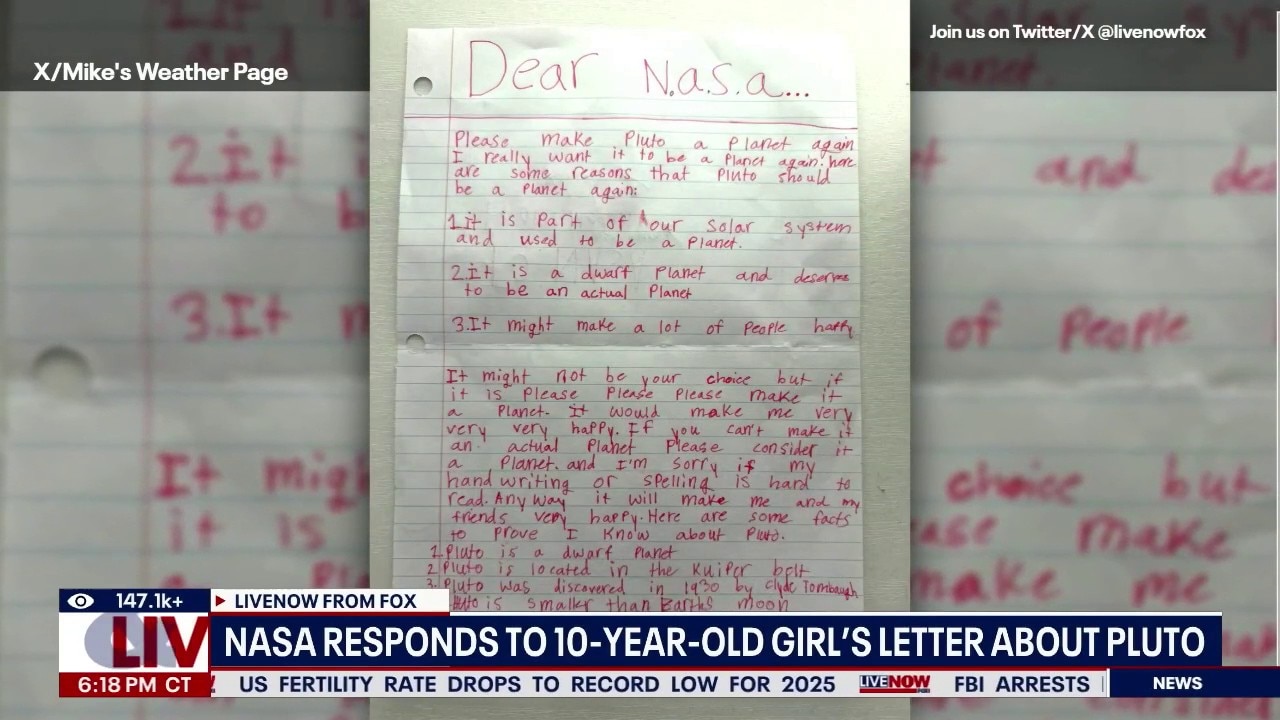 X/Mike's Weather Page
Join us on Twitter/X @livenowfox
Dear N.a.s.a...
Please make Pluto a Planet again
I really want it to be a Planet again. here
are some reasons that Pluto should
be a Planet again:
1.it is part of our solar system
and used to be a Planet.
2.it is a dwarf Planet and deserves
to be an actual Planet
3.It might make a lot of People happy
It might not be your choice but if
it is Please Please Please make it
a Planet. it would make me very
very very happy. If you can't make it
an actual Planet Please consider it
a Planet. and I'm sorry if my
handwriting or spelling is hard to
read. Any way it will make me and my
friends very happy. Here are some facts
to Prove I Know about Pluto.
1.Pluto is a dwarf Planet
2 Pluto is located in the Kuiper belt
3.Pluto was discovered in 1930 by Clyde Tombaugh
Pluto is smaller than Earths moon
147.1k+
LIVENOW FROM FOX
LIV
NASA RESPONDS TO 10-YEAR-OLD GIRL'S LETTER ABOUT PLUTO
6:18 PM CT
US FERTILITY RATE DROPS TO RECORD LOW FOR 2025 LIVENOW FBI ARRESTS
NEWS